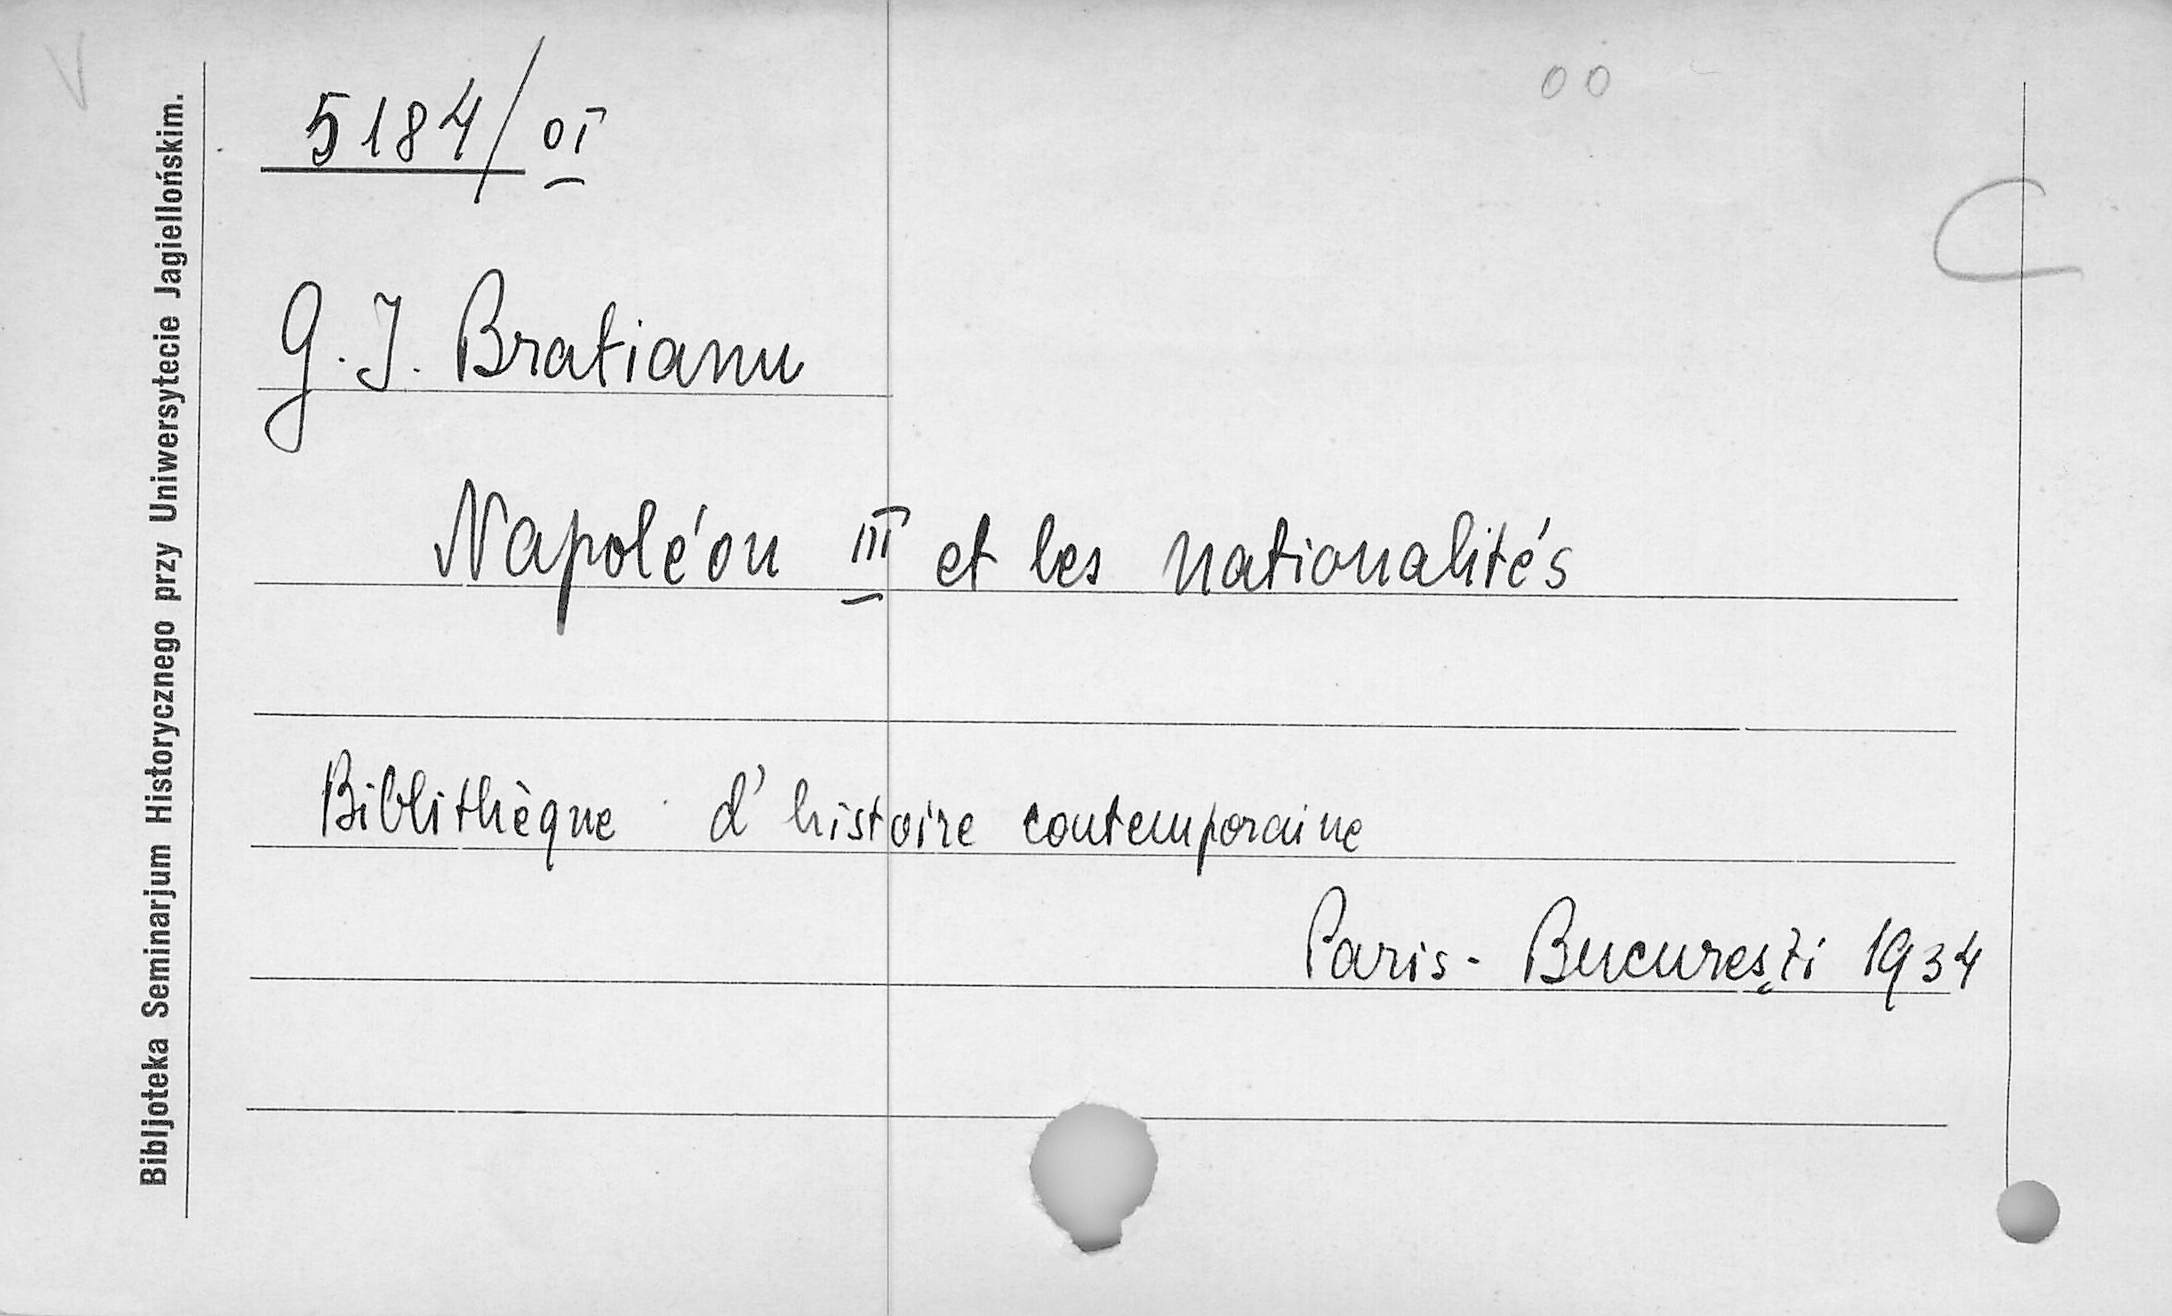 V
5184/OI
OO
C
G. J. Bratianu
Napoléon III et les nationalités
Biblithèque d'histoire contemporaine
Paris - Bucureşti 1934
Bibljoteka Seminarjum Historycznego przy Uniwersytecie Jagiellońskim.